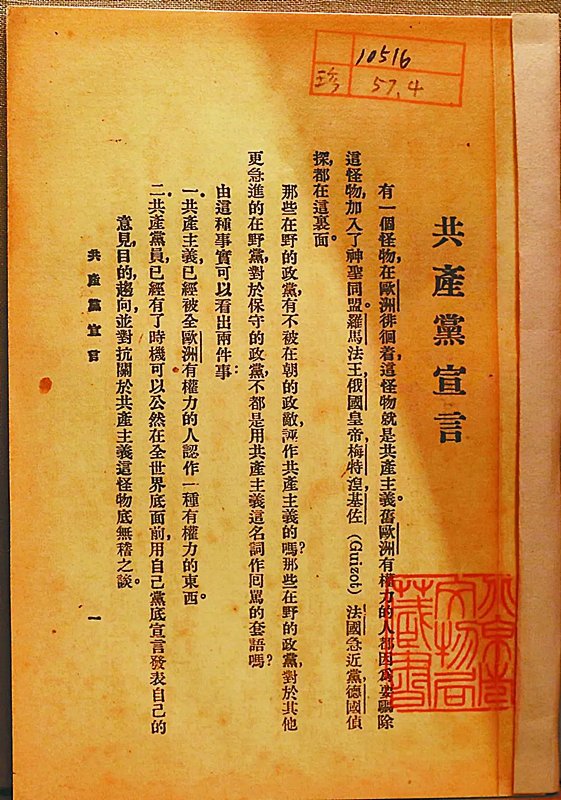 10516
珍 57.4
共產黨宣言
有一個怪物，在歐洲徘徊着，這怪物就是共產主義。舊歐洲有權力的人都因為要驅除
這怪物，加入了神聖同盟。羅馬法王，俄國皇帝，梅特湼，基佐（Guizot）法國急近黨，德國偵
探，都在這裏面。
那些在野的政黨，有不被在朝的政敵，誣作共產主義的嗎？那些在野的政黨，對於其他
更急進的在野黨，對於保守的政黨，不都是用共產主義這名詞作回罵的套語嗎？
由這種事實可以看出兩件事：
一．共產主義，已經被全歐洲有權力的人認作一種有權力的東西。
二．共產黨員，已經有了時機可以公然在全世界底面前，用自己黨底宣言發表自己的
意見，目的，趨向，並對抗關於共產主義這怪物底無稽之談。
共產黨宣言
一